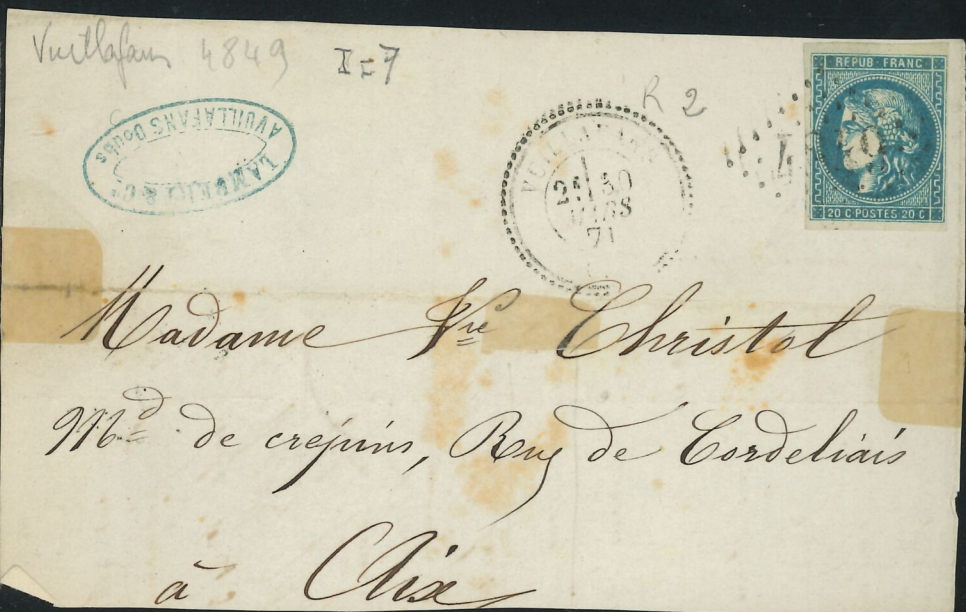 Vuillafans 4849
I = 7
R 2
LAMBERT & Cie
A VUILLAFANS Doubs
VUILLAFANS
2E 30
MARS
71
REPUB. FRANC
20 C POSTES 20 C
Madame Vve Christol
Md de crépins, Rue de Cordeliais
à Aix